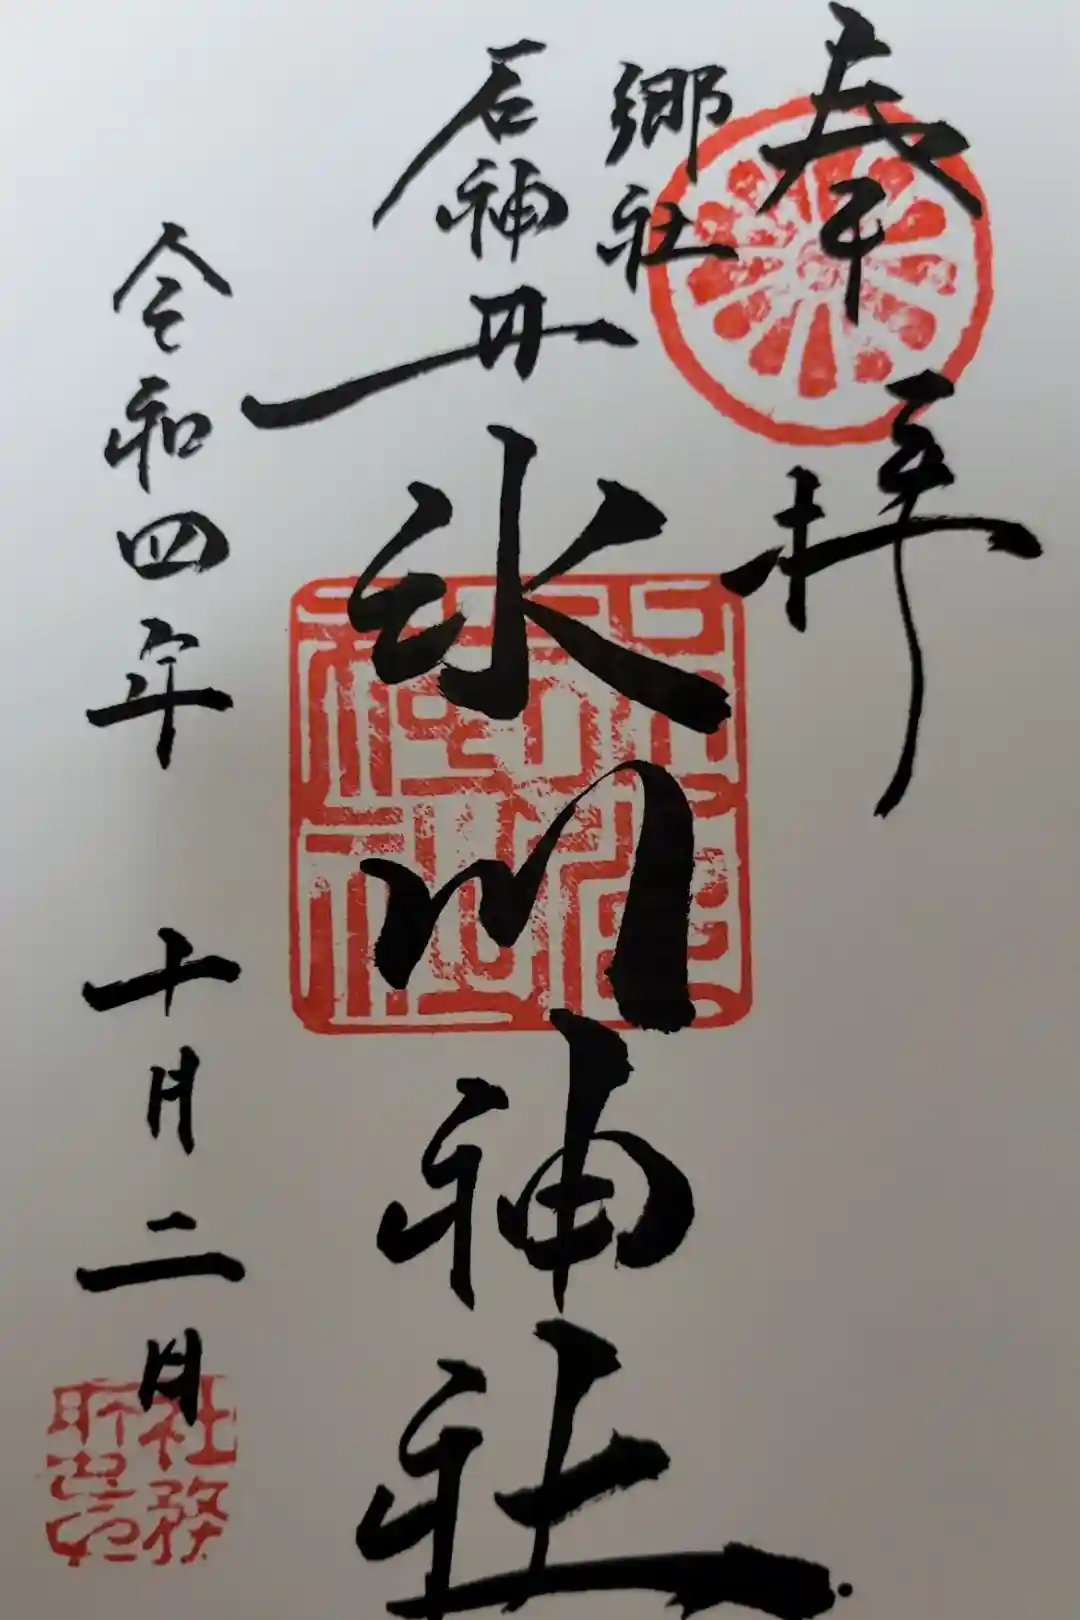 奉拝
郷社
石神井
氷川神社
令和四年 十月二日
社務所之印